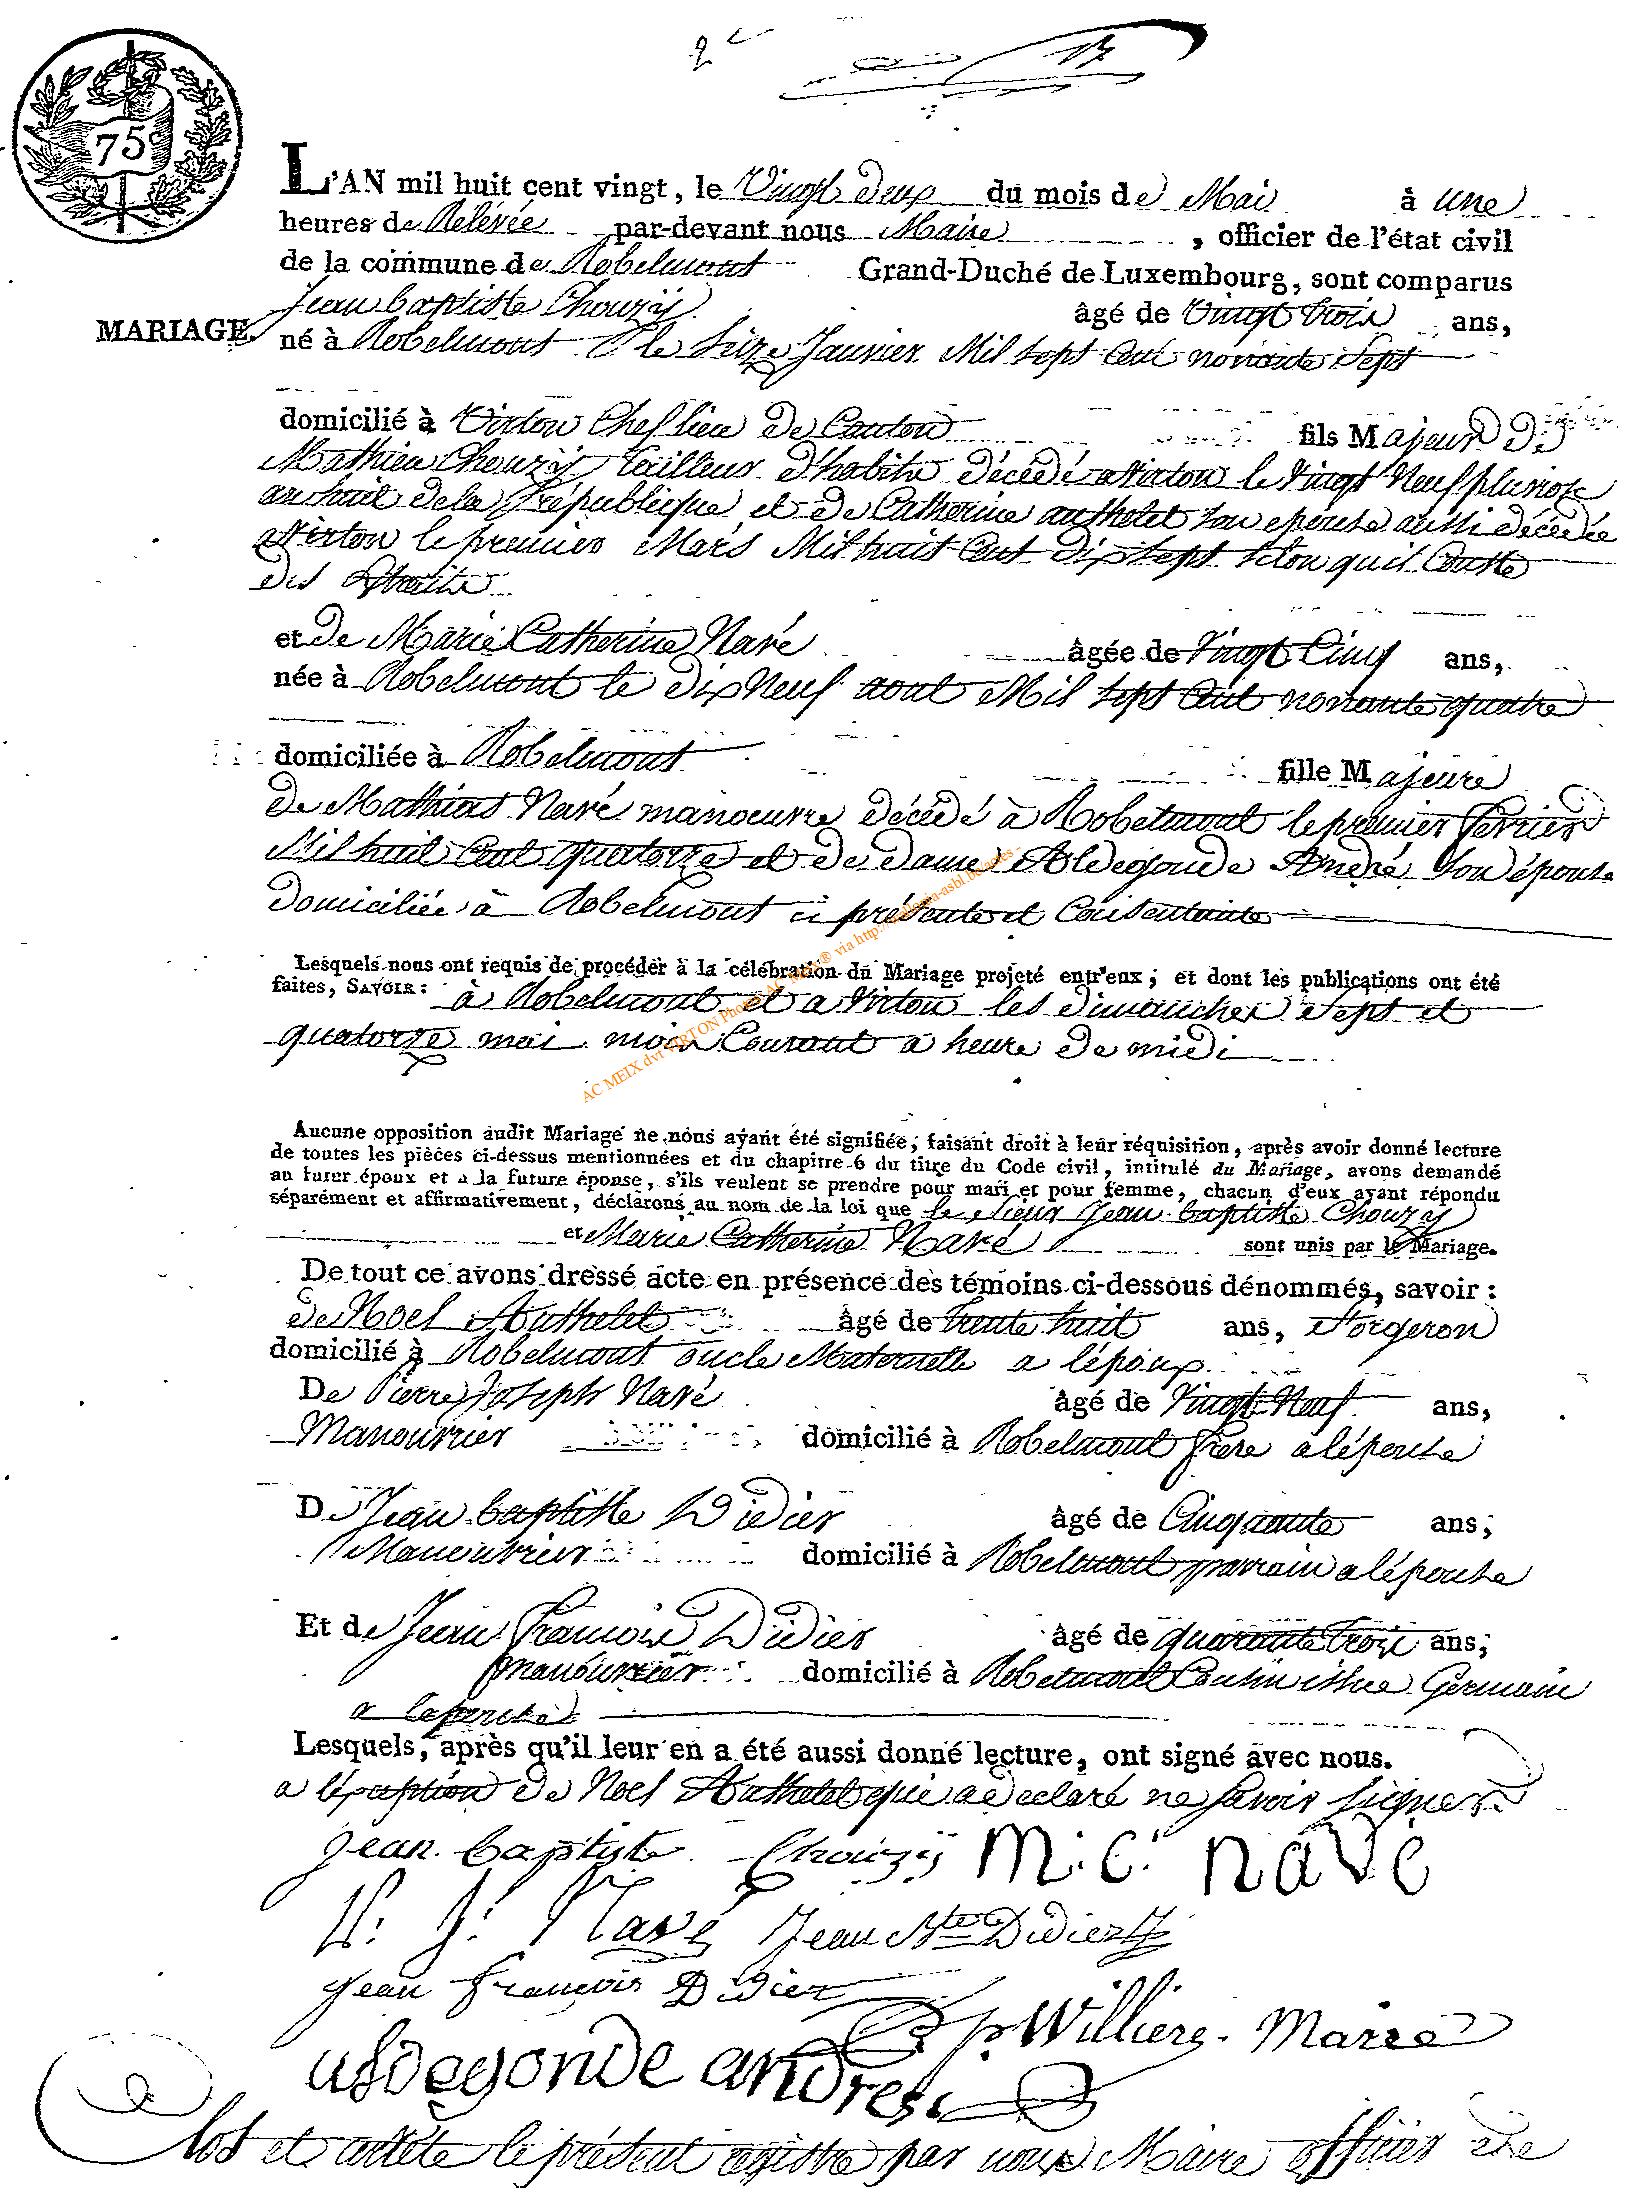 2e 17
75c
L'AN mil huit cent vingt, le Vingt deux du mois de Mai à une
heures de Rélévée par-devant nous Maire, officier de l'état civil
de la commune de Robelmont Grand-Duché de Luxembourg, sont comparus
Jean baptiste Chouzÿ âgé de Vingt trois ans,
MARIAGE. né à Robelmont le Seize Janvier Mil sept Cent nonante Sept
domicilié à Virton Chef lieu de Canton fils Majeur De
Mathieu Chouzÿ tailleur d'habits décédé a Virton le Vingt Neuf pluviose
an huit de la République et de Catherine authelet son epouse aussi décédée
a Virton le premier Mars Mil huit Cent dix sept selon qu'il Conste
des Extraits
et de Marie Catherine Navé âgée de Vingt Cinq ans,
née à Robelmont le dix Neuf aout Mil sept Cent nonante quatre
domiciliée à Robelmont fille Majeure
de Mathias Navé manoeuvre décédé à Robelmont le premier fevrier
Mil huit Cent quatorze et de dame Aldegonde André son épouse
domiciliée à Robelmont ci présente et Consentante
Lesquels nous ont requis de procéder à la célébration du Mariage projeté entr'eux; et dont les publications ont été
faites, SAVOIR: à Robelmont et a Virton les dimanches Sept et
quatorze mai mois Courant a heure de midi
AC MEIX dvt VIRTON Photo AC MEIX® via http://
Aucune opposition audit Mariage ne nous ayant été signifiée, faisant droit à leur réquisition, après avoir donné lecture
de toutes les pièces ci-dessus mentionnées et du chapitre 6 du titre du Code civil, intitulé du Mariage, avons demandé
au futur époux et à la future épouse, s'ils veulent se prendre pour mari et pour femme, chacun d'eux ayant répondu
séparément et affirmativement, déclarons au nom de la loi que le sieur Jean baptiste Chouzÿ
et Marie Catherine Navé sont unis par le Mariage.
De tout ce avons dressé acte en présence des témoins ci-dessous dénommés, savoir:
de Noel Authelet âgé de trente huit ans, forgeron
domicilié à Robelmont oncle Maternelle a l'époux
De Pierre Joseph Navé âgé de Vingt Neuf ans,
Manouvrier domicilié à Robelmont frere a l'épouse
De Jean baptiste Didier âgé de Cinquante ans,
Manouvrier domicilié à Robelmont parrain a l'épouse
Et de Jean François Didier âgé de quarante trois ans,
manouvrier domicilié à Robelmont Cousin issue Germain
a l'epouse
Lesquels, après qu'il leur en a été aussi donné lecture, ont signé avec nous.
a l'éxception de Noel Authelet qui a declaré ne savoir signer
jean baptiste Chouzÿ m: c: nave
P: J: Navé Jean Bte Didier
jean françois Didier
p Williere Maire
aldegonde andre
Clos et arrêté le présent régistre par nous Maire officier de